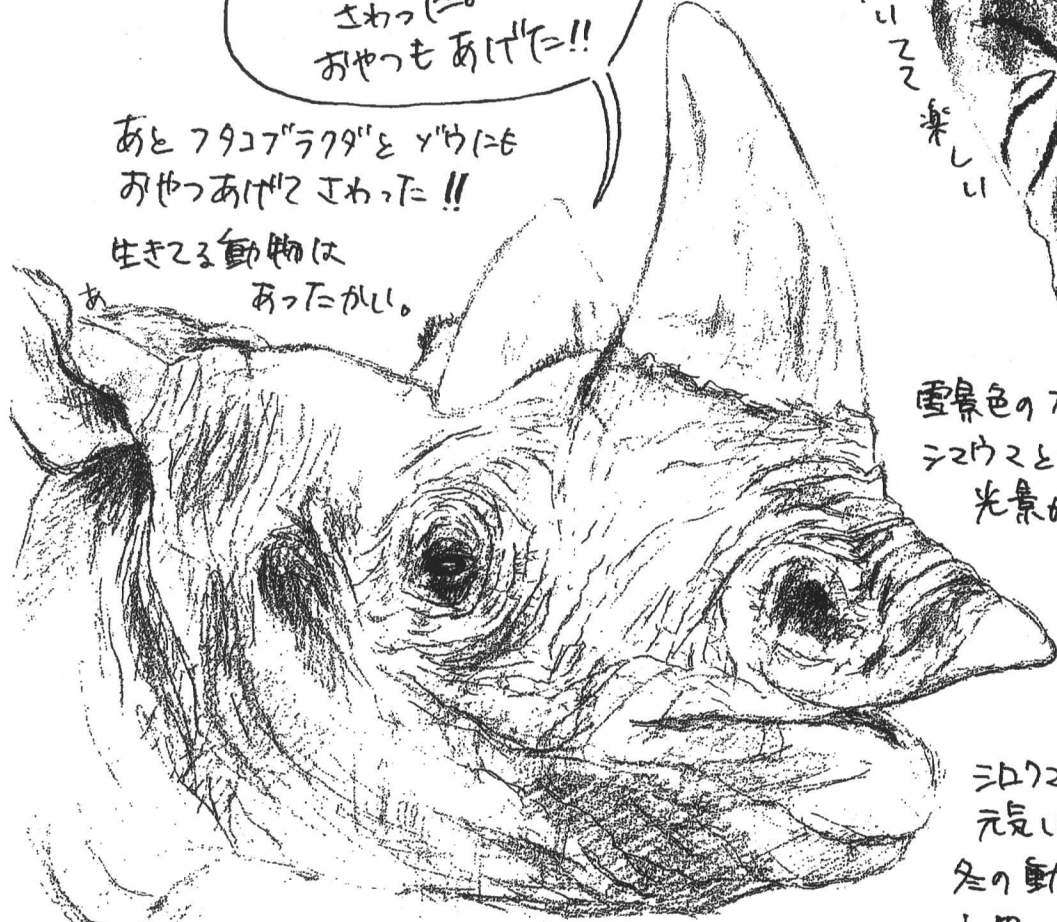 さわった。
おやつも あげた!!
あと フタコブラクダと ゾウにも
おやつあげて さわった!!
生きてる動物は
あったかい。
いてて楽しい
雪景色の
シマウマと
光景
シロクマ
元気
冬の動